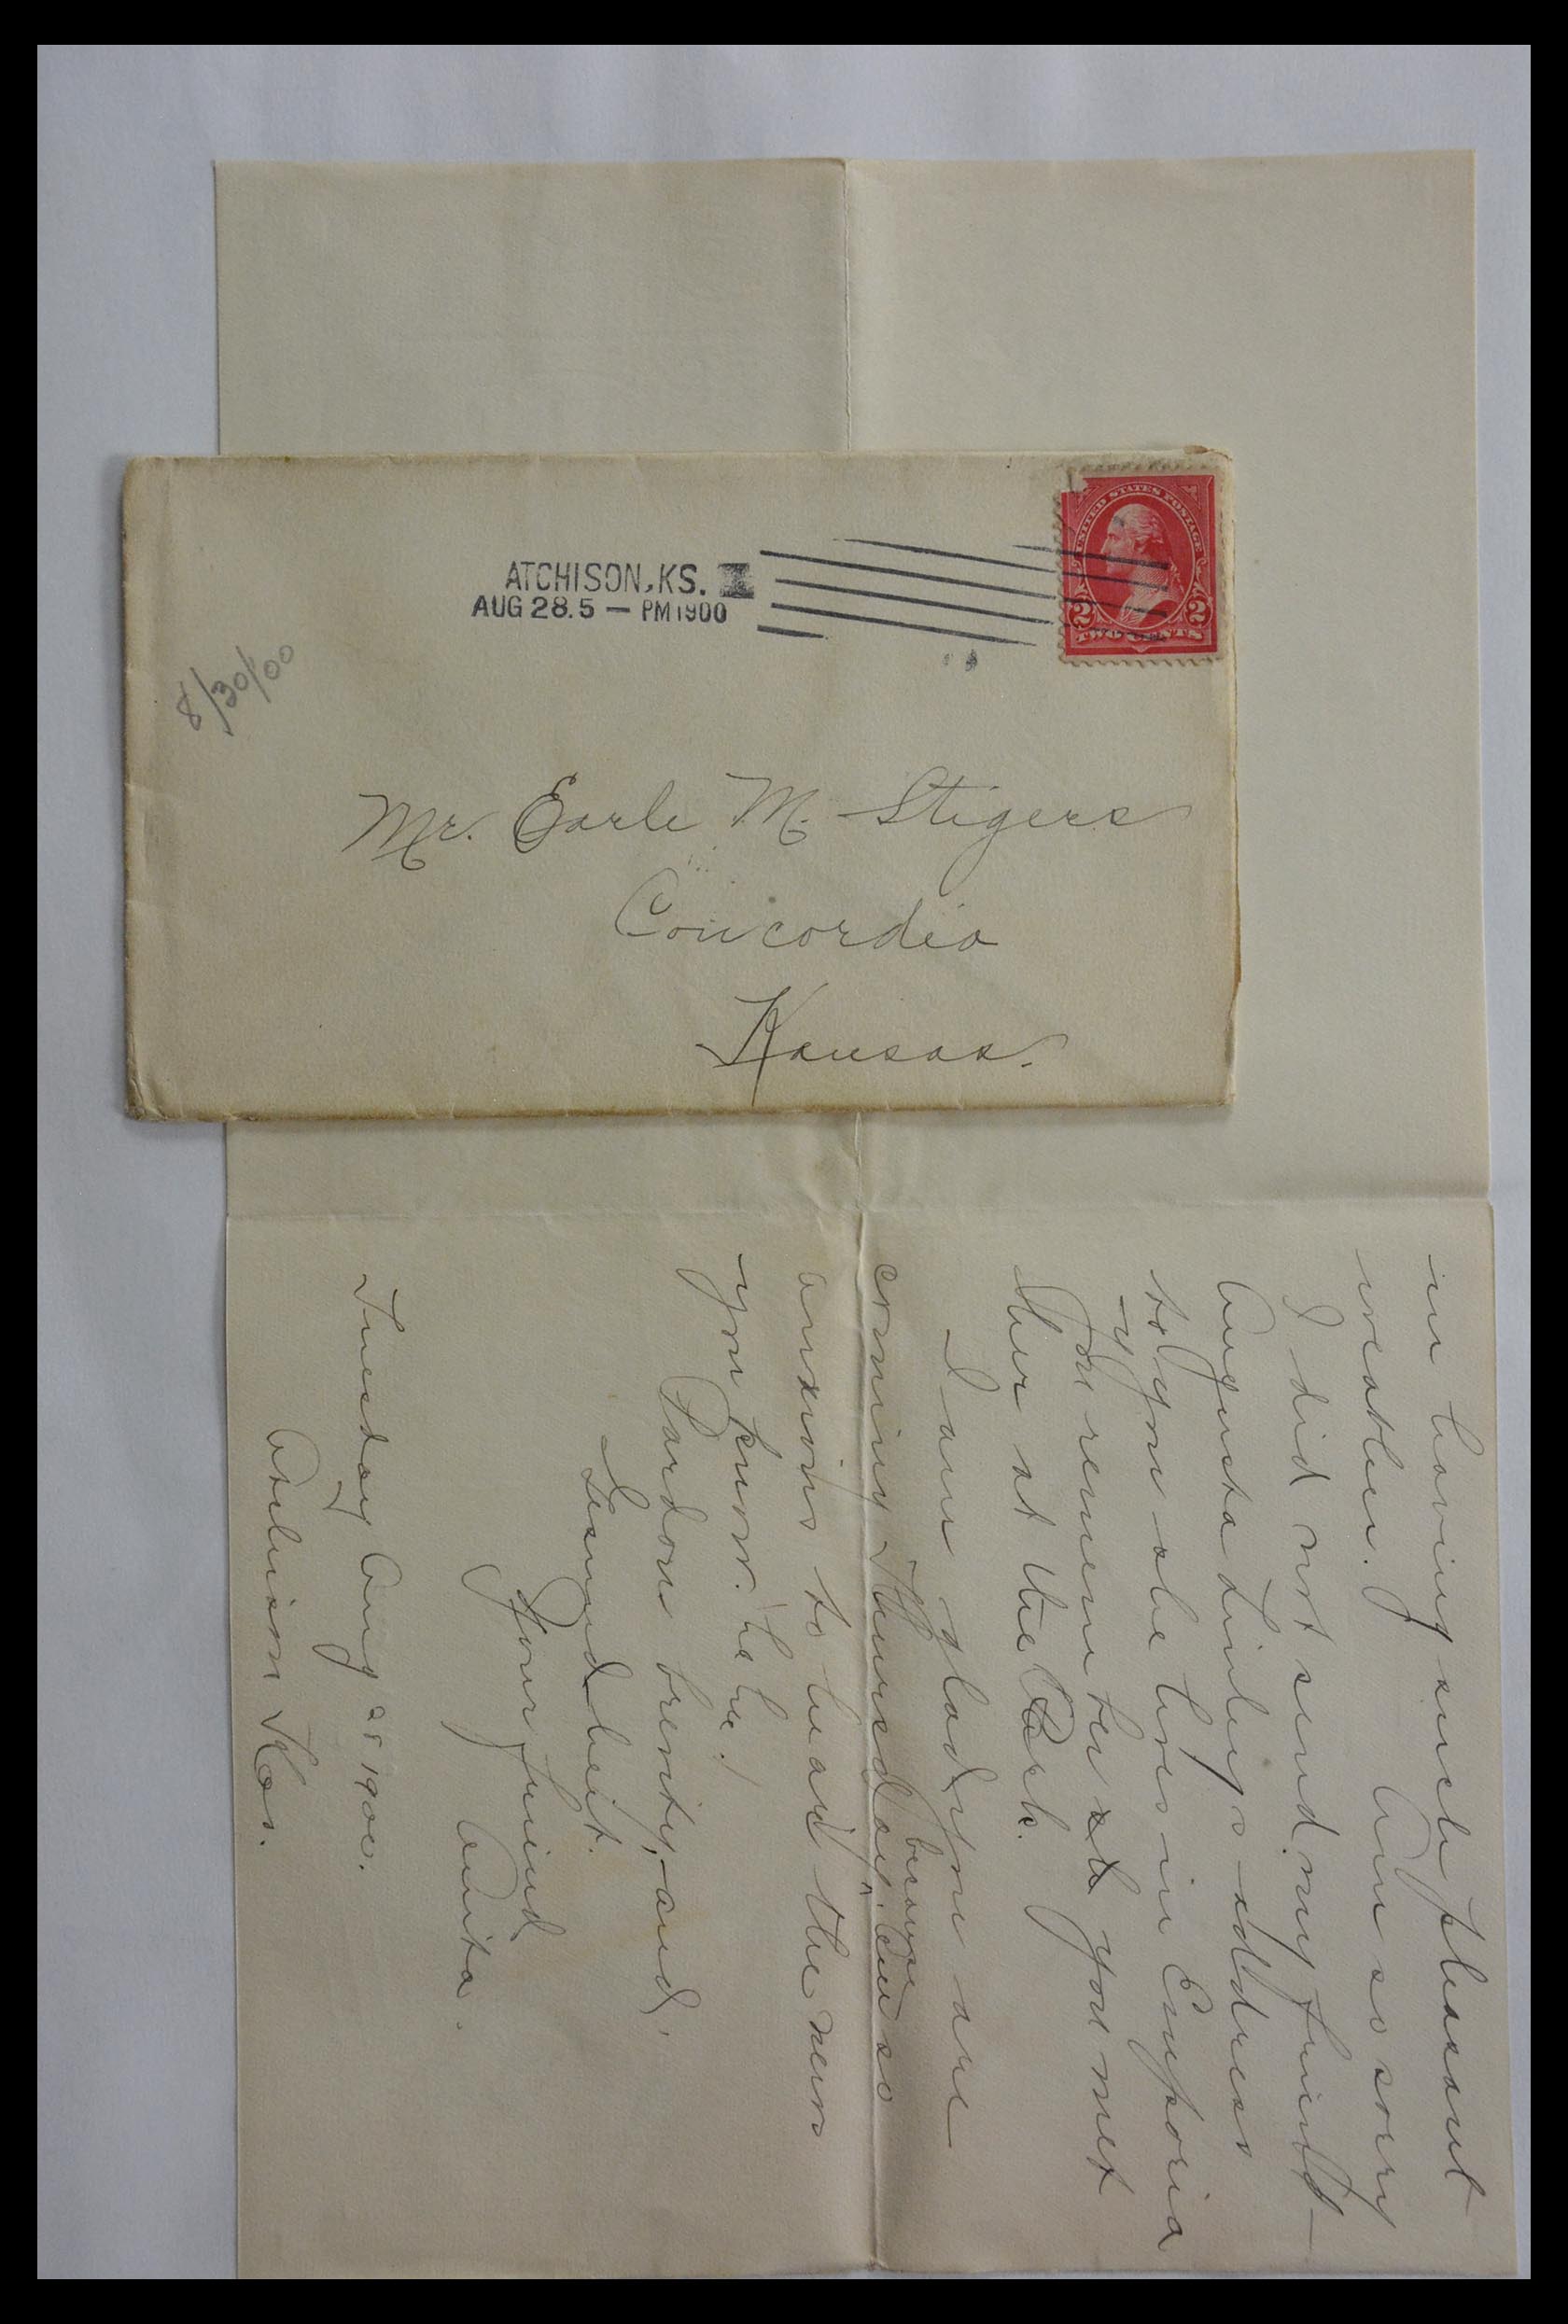 UNITED STATES POSTAGE
2 2
TWO CENTS
ATCHISON, KS. I
AUG 28. 5 — PM 1900
8/30/00
Mr. Earle M. Stigers
Concordia
Kansas.
in having such pleasant
weather. Am so sorry
I did not send my friend
Augusta Linley's address
to you she lives in Emporia
You remember you met
her at the Park.
I am glad you are
coming Thursday, because Am so
anxious to heard the news
you know. "he he!
Pardon brevity, and,
Your friend
Anita.
Tuesday Aug 28 1900.
Atchison Kas.